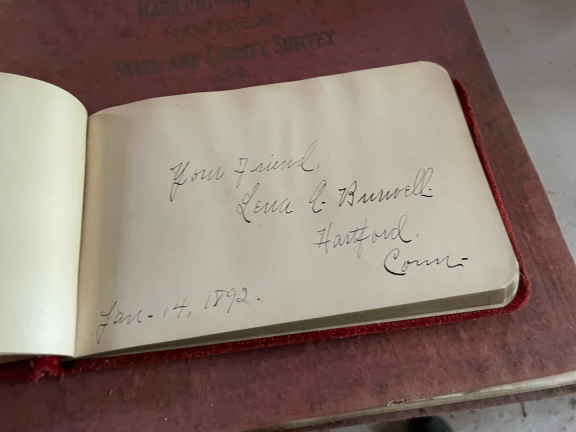 STATE AND COUNTY SURVEY
Your Friend.
Lena A. Burwell.
Hartford.
Conn-
Jan- 14, 1892.